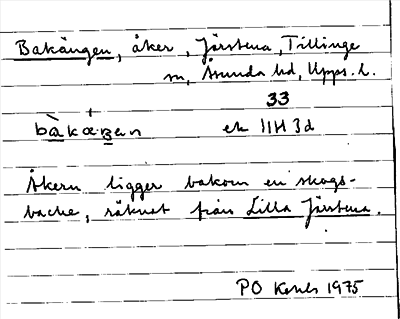 Bakängen, åker, Järstena, Tillinge
sn, Åsunda hd, Upps. l.
33
bàkæŋan ek 11H 3d
Åkern ligger bakom en skogs-
backe, räknat från Lilla Järstena.
PO 1975